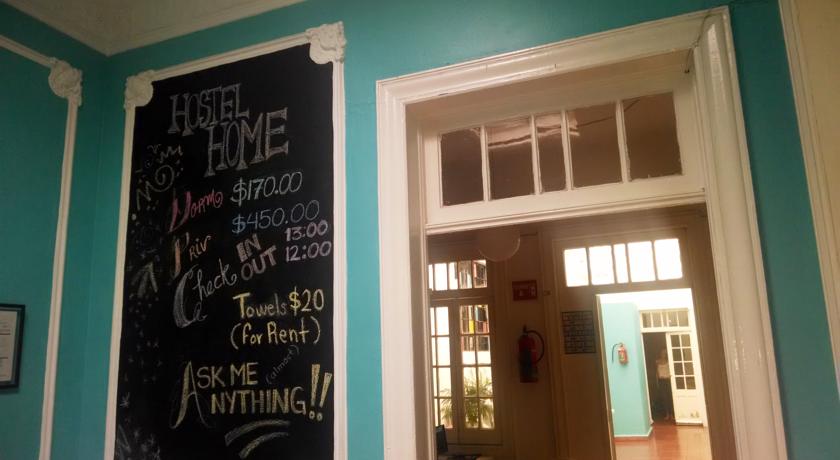 HOSTEL
HOME
Dorm $170.00
Priv $450.00
Check IN 13:00
OUT 12:00
Towels $20
(for Rent)
ASK ME
(almost)
ANYTHING!!